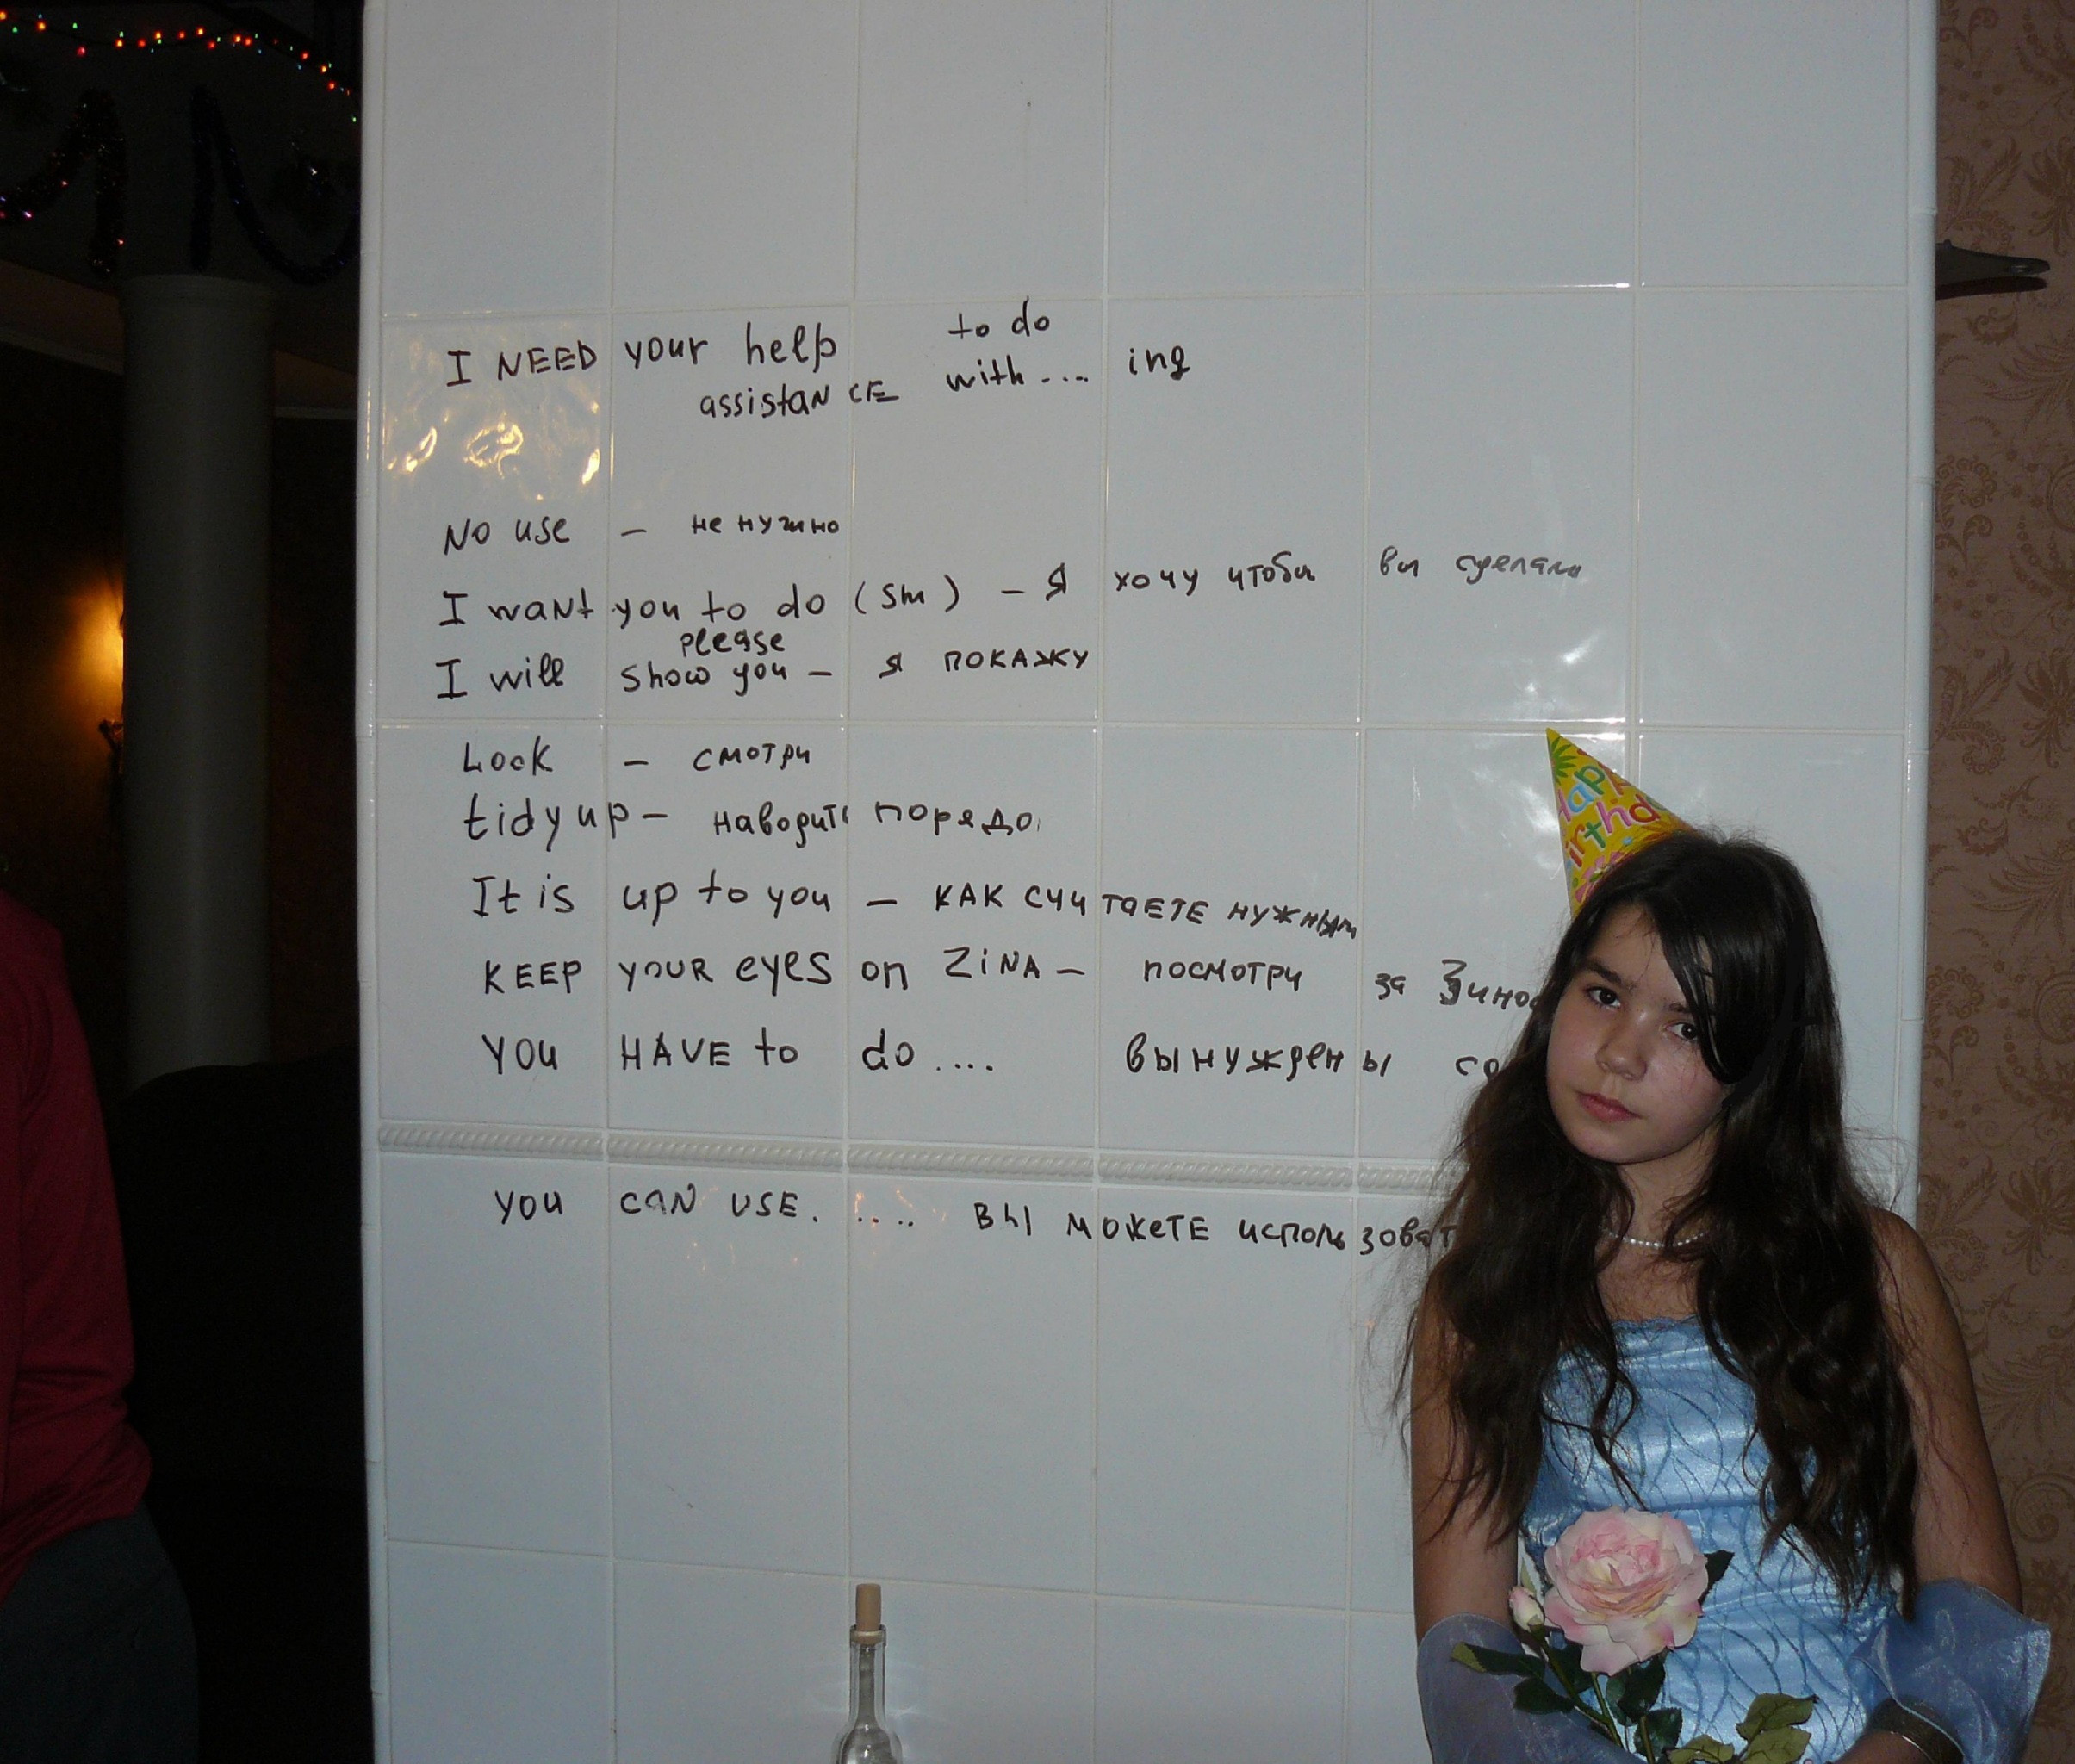 to do
I NEED your help with.... ing
assistANCE
NO use – не нужно
I waNt you to do (sm) – Я хочу чтобы вы сделали
please
I will show you – я ПОКАЖУ
Look – смотри
tidy up – наводить порядо
It is up to you – КАК СЧИТАЕТЕ НУЖНЫМ
KEEP YOUR eyes on ZiNA – посмотри за Зиной
YOU HAVE to do .... вынуждены со
YOU CAN USE. .... ВЫ МОЖЕТЕ использоват
Happy
irthd